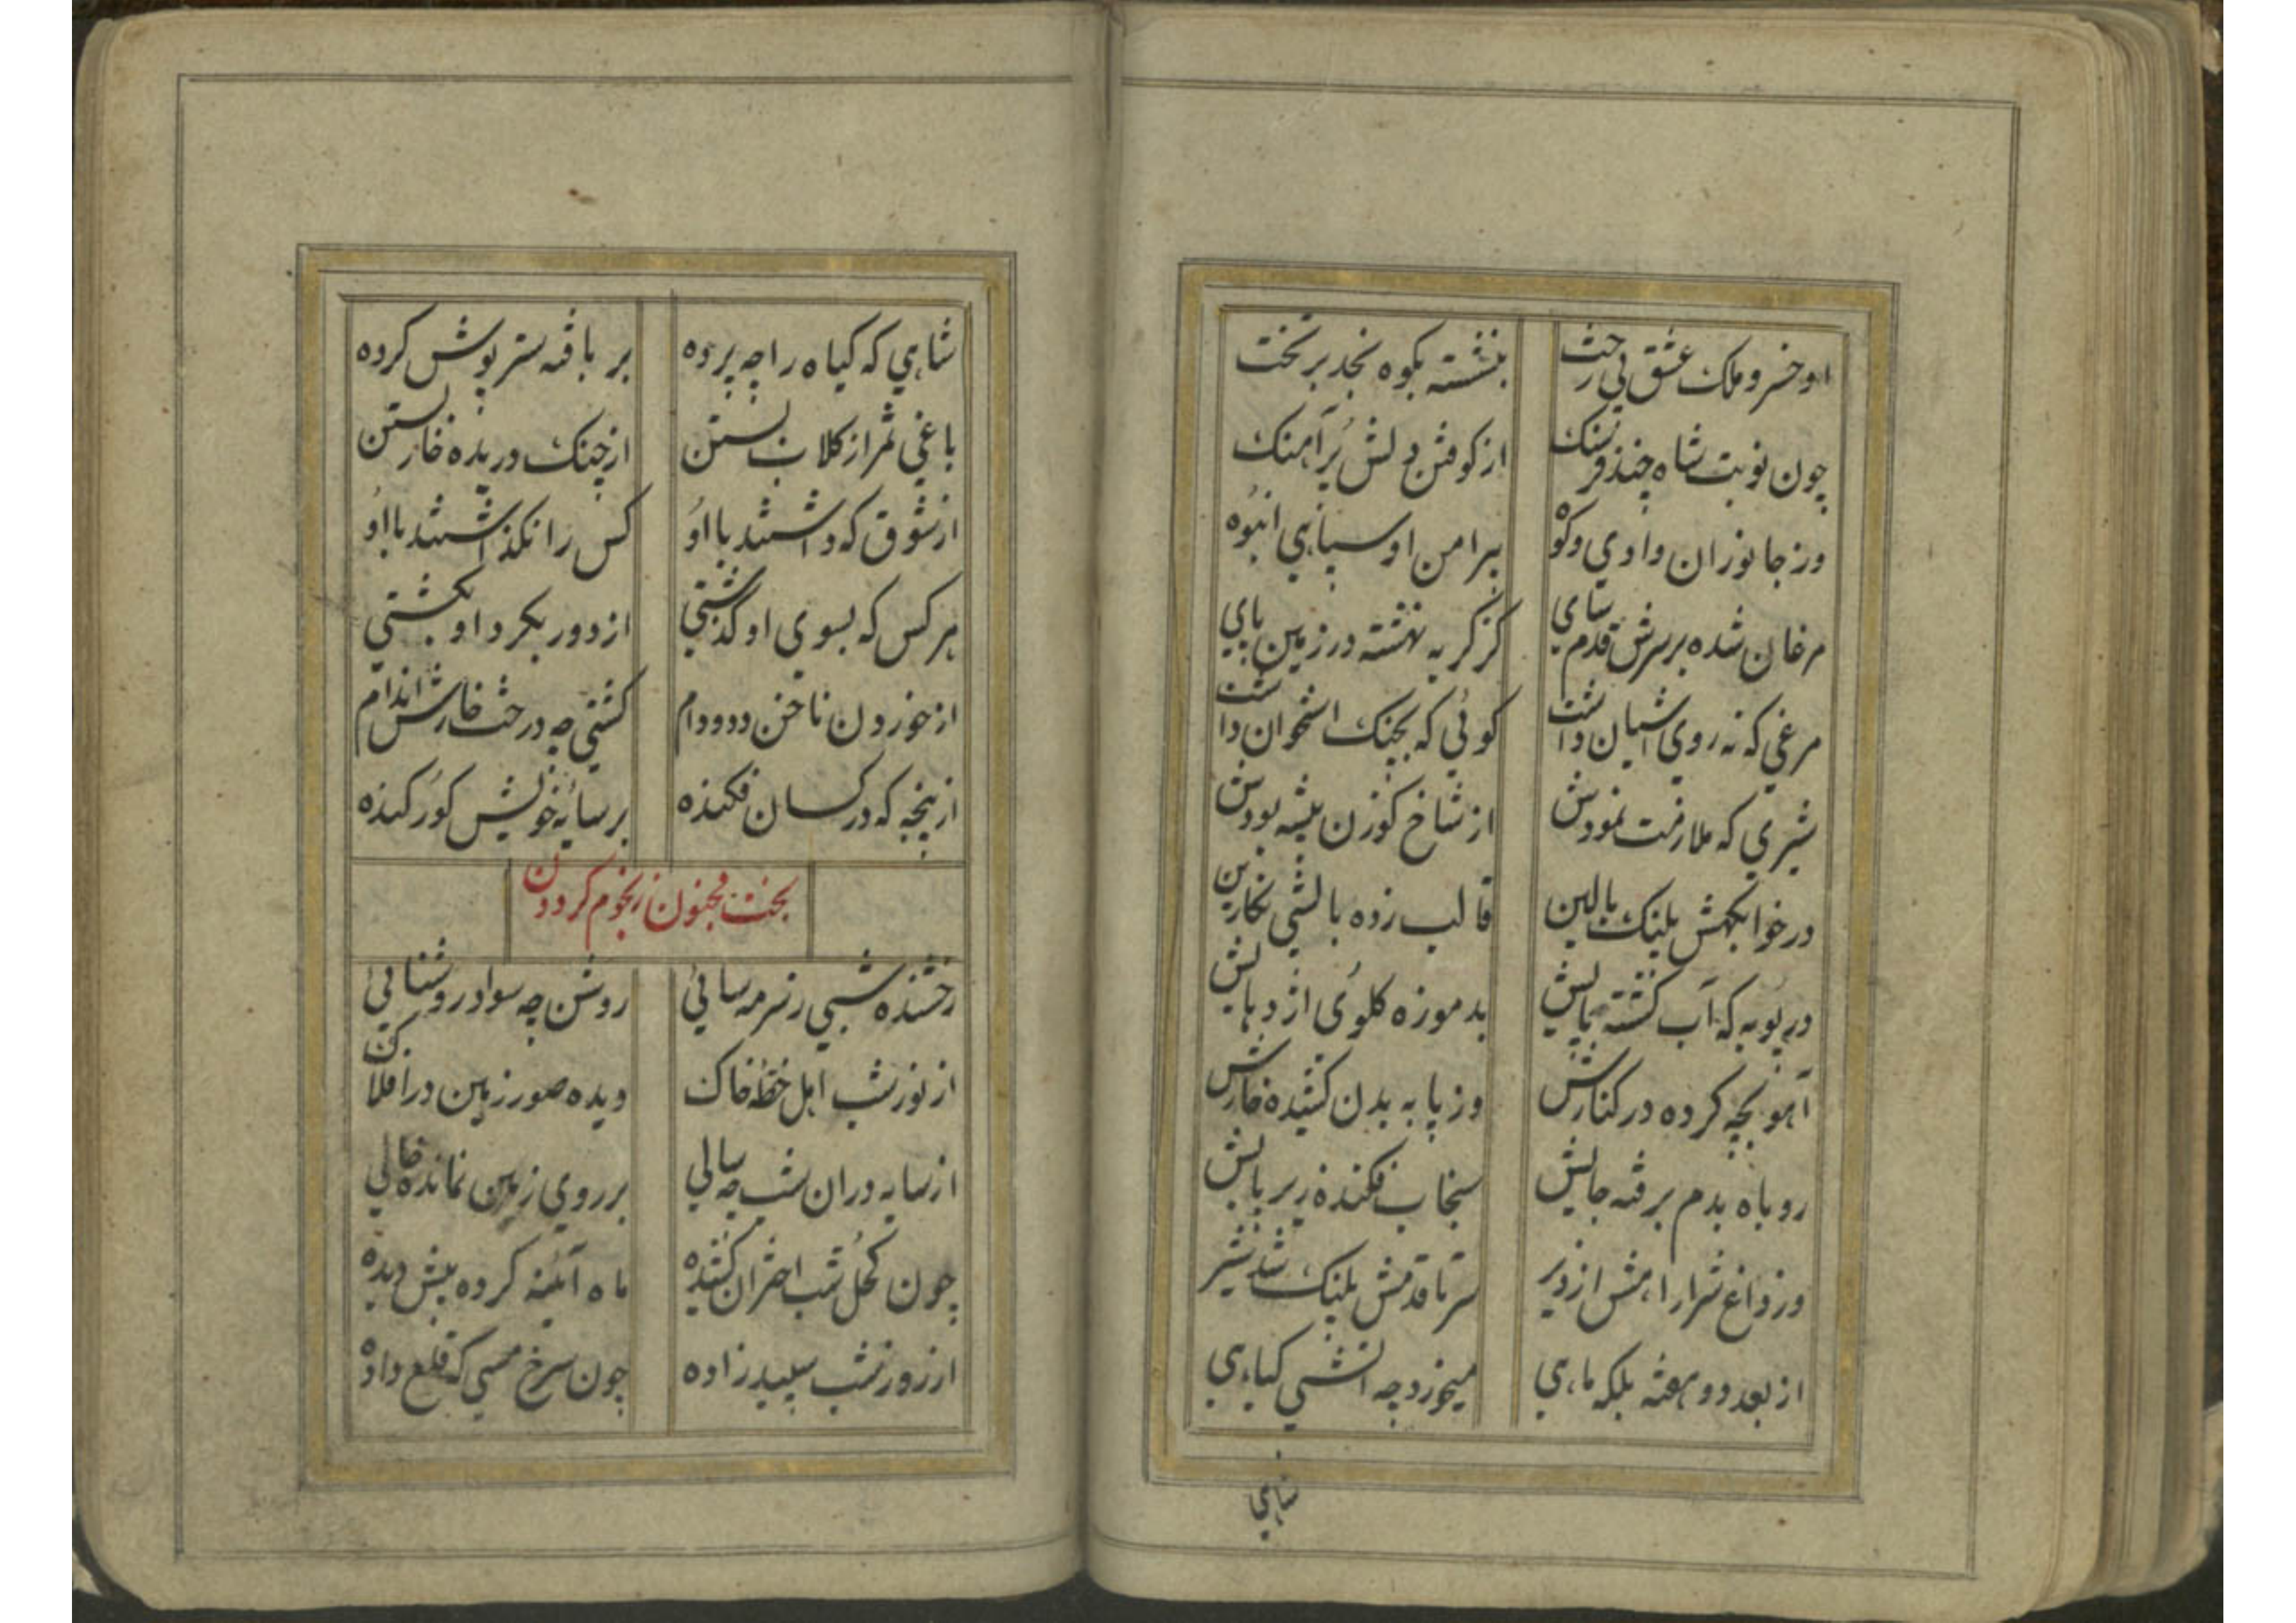 او خسرو ملک عشق بی رخت بنشسته بکوه نجد بر تخت
چون نوبت شاه چند فرسنک از کوفتن دلش پر آهنک
وز جانوران وادی و کوه پیرامن او سپاهی انبوه
مرغان شده بر سرش قدم سای کز کریه نهشته در زمین پای
مرغی که نه روی اشیان داشت کوئی که بچنک استخوان داشت
شیری که ملازمت نمودش از شاخ کوزن بیشه بودش
در خوابکهش پلنک بالین قالب زده بالشی نکارین
در پویه که آب کشته پایش بد موزه کلوی اژدهایش
آهو بچه کرده در کنارش وز پا به بدن کشیده خارش
روباه بدم برفته جایش سنجاب فکنده زیر پایش
وز داغ شرار اهش از دیر سر تا قدمش پلنک شد شیر
از بعد دو هفته بلکه ماهی میخورد چه اتشی کیاهی
شاهی
شاهی که کیاه را چه پرده بر بافته ستر پوش کرده
باغی ثمر از کلاب بستن از چنک دریده خار بستن
از شوق که داشتند با او کس را نکذاشتند با او
هر کس که بسوی او کذشتی از دور بکرد او بکشتی
از خوردن ناخن دد و دام کشتی چه درخت خارش اندام
از پنجه که در کسان فکنده بر سایه خویش کور کنده
بخت مجنون ز نجوم کردون
رخشنده شبی ز سرمه سائی روشن چه سواد روشنائی
از نور شب اهل خطه خاک دیده صور زمین در افلاک
از سایه دران شب چه سالی بر روی زمین نمانده خالی
چون کحل شب اختران کشیده ماه آئینه کرده پیش دیده
از روز شب سپید زاده چون سرخ مسی که قلع داده